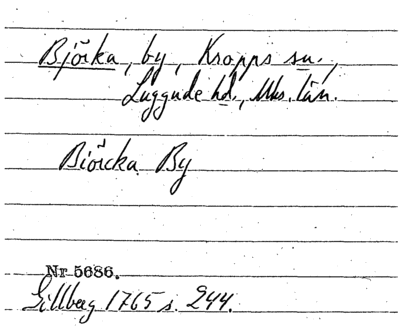 Björka, by, Kropps sn.,
Luggude hd., Mhs. län.
Biörcka By
Nr 5686.
Gillberg 1765 s. 244.